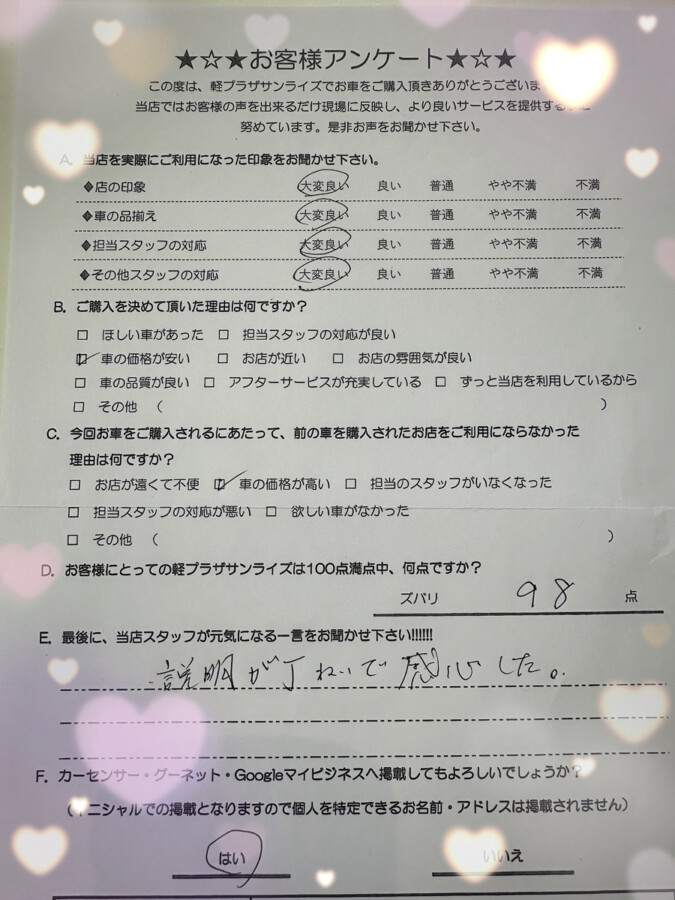 ★☆★お客様アンケート★☆★
この度は、軽プラザサンライズでお車をご購入頂きありがとうございま
当店ではお客様の声を出来るだけ現場に反映し、より良いサービスを提供する
努めています。是非お声をお聞かせ下さい。
A. 当店を実際にご利用になった印象をお聞かせ下さい。
◆店の印象 大変良い 良い 普通 やや不満 不満
◆車の品揃え 大変良い 良い 普通 やや不満 不満
◆担当スタッフの対応 大変良い 良い 普通 やや不満 不満
◆その他スタッフの対応 大変良い 良い 普通 やや不満 不満
B. ご購入を決めて頂いた理由は何ですか？
□ ほしい車があった □ 担当スタッフの対応が良い
☑ 車の価格が安い □ お店が近い □ お店の雰囲気が良い
□ 車の品質が良い □ アフターサービスが充実している □ ずっと当店を利用しているから
□ その他 （ ）
C. 今回お車をご購入されるにあたって、前の車を購入されたお店をご利用にならなかった
理由は何ですか？
□ お店が遠くて不便 ☑ 車の価格が高い □ 担当のスタッフがいなくなった
□ 担当スタッフの対応が悪い □ 欲しい車がなかった
□ その他 （ ）
D. お客様にとっての軽プラザサンライズは100点満点中、何点ですか？
ズバリ 98 点
E. 最後に、当店スタッフが元気になる一言をお聞かせ下さい!!!!!!
説明が丁ねいで感心した。
F. カーセンサー・グーネット・Googleマイビジネスへ掲載してもよろしいでしょうか？
ニシャルでの掲載となりますので個人を特定できるお名前・アドレスは掲載されません）
はい いいえ